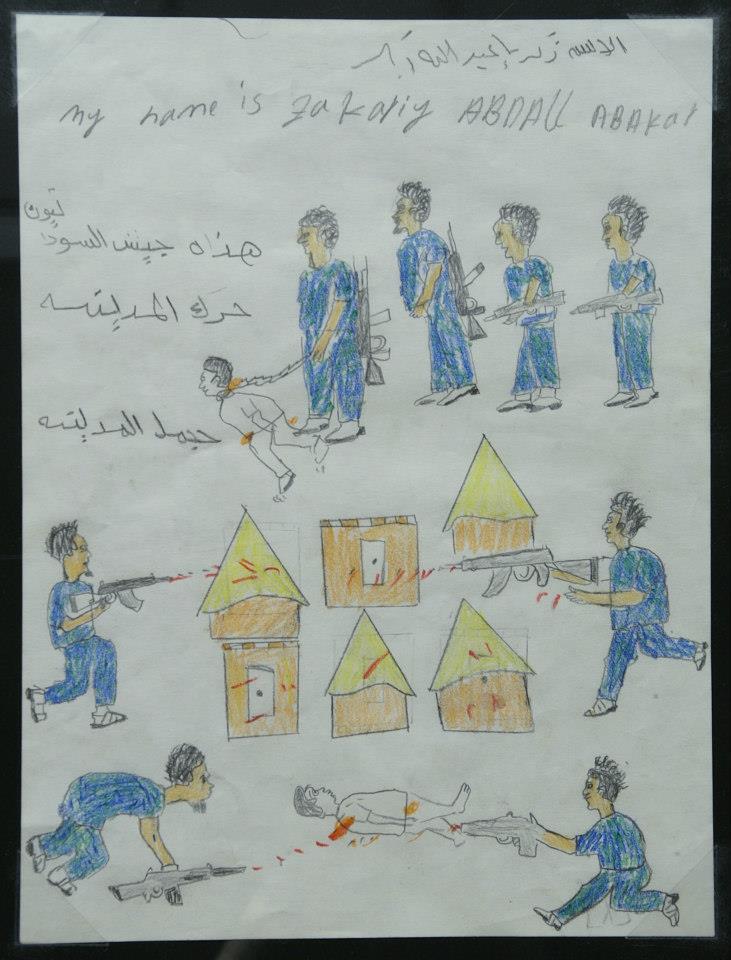 الاسم زكريا عبد الله
my name is zakariy ABDALL ABAKar
هذاه جيش السودانيون
حرك المدينه
المدينه